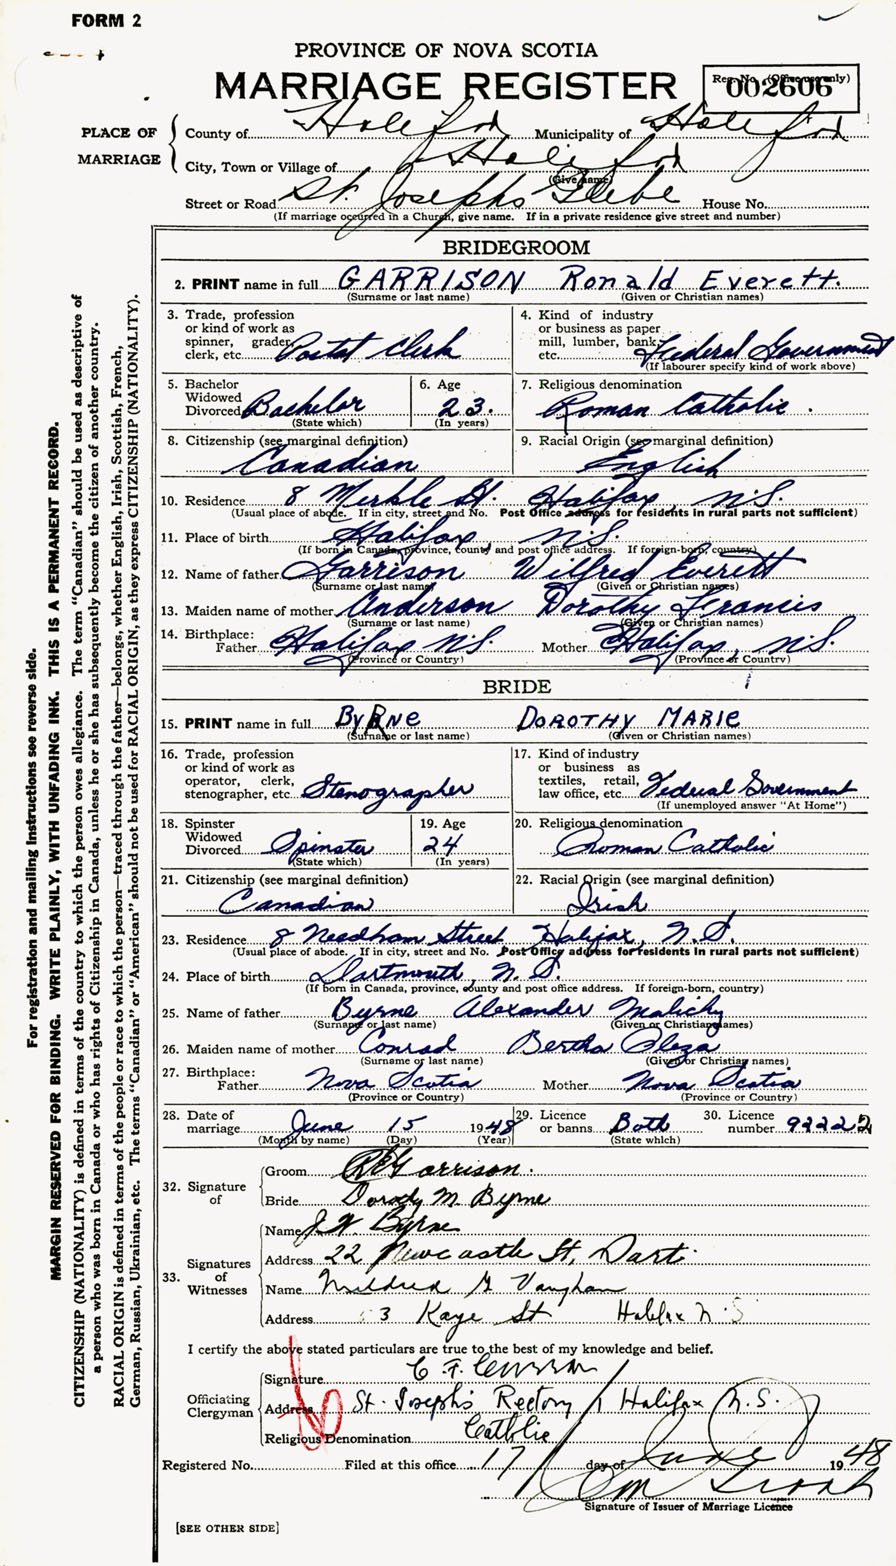 FORM 2
PROVINCE OF NOVA SCOTIA
MARRIAGE REGISTER
Reg. No. (Office use only)
002606
PLACE OF MARRIAGE
County of Halifax Municipality of Halifax
City, Town or Village of Halifax
(Give name)
Street or Road St. Josephs Glebe House No.
(If marriage occurred in a Church, give name. If in a private residence give street and number)
BRIDEGROOM
2. PRINT name in full GARRISON Ronald Everett.
(Surname or last name) (Given or Christian names)
3. Trade, profession or kind of work as spinner, grader, clerk, etc. Postal Clerk
4. Kind of industry or business as paper mill, lumber, bank, etc. Federal Government
(If labourer specify kind of work above)
5. Bachelor Widowed Divorced Bachelor
(State which)
6. Age 23.
(In years)
7. Religious denomination Roman Catholic.
8. Citizenship (see marginal definition) Canadian
9. Racial Origin (see marginal definition) English
10. Residence 8 Merkle St. Halifax N.S.
(Usual place of abode. If in city, street and No. Post Office address for residents in rural parts not sufficient)
11. Place of birth Halifax, N.S.
(If born in Canada, province, county and post office address. If foreign-born, country)
12. Name of father Garrison Wilfred Everett
(Surname or last name) (Given or Christian names)
13. Maiden name of mother Anderson Dorothy Francis
(Surname or last name) (Given or Christian names)
14. Birthplace: Father Halifax N.S. Mother Halifax, N.S.
(Province or Country) (Province or Country)
BRIDE
15. PRINT name in full BYRNE DOROTHY MARIE
(Surname or last name) (Given or Christian names)
16. Trade, profession or kind of work as operator, clerk, stenographer, etc. Stenographer
17. Kind of industry or business as textiles, retail, law office, etc. Federal Government
(If unemployed answer "At Home")
18. Spinster Widowed Divorced Spinster
(State which)
19. Age 24
(In years)
20. Religious denomination Roman Catholic
21. Citizenship (see marginal definition) Canadian
22. Racial Origin (see marginal definition) Irish
23. Residence 8 Needham Street Halifax, N.S.
(Usual place of abode. If in city, street and No. Post Office address for residents in rural parts not sufficient)
24. Place of birth Dartmouth, N.S.
(If born in Canada, province, county and post office address. If foreign-born, country)
25. Name of father Byrne Alexander Malichy
(Surname or last name) (Given or Christian names)
26. Maiden name of mother Conrad Bertha
(Surname or last name) (Given or Christian names)
27. Birthplace: Father Nova Scotia Mother Nova Scotia
(Province or Country) (Province or Country)
28. Date of marriage June 15 1948
(Month by name) (Day) (Year)
29. Licence or banns Both
(State which)
30. Licence number 92222
32. Signature of
Groom R E Garrison.
Bride Dorothy M. Byrne
33. Signatures of Witnesses
Name Byrne
Address 22 Newcastle St, Dart.
Name Mildred G Vaughan
Address 3 Kaye St Halifax N.S
I certify the above stated particulars are true to the best of my knowledge and belief.
Officiating Clergyman
Signature C. F.
Address St. Joseph's Rectory Halifax N.S.
Religious Denomination Catholic
Registered No. Filed at this office 17 day of June 1948
Signature of Issuer of Marriage Licence
[SEE OTHER SIDE]
For registration and mailing instructions see reverse side.
MARGIN RESERVED FOR BINDING. WRITE PLAINLY, WITH UNFADING INK. THIS IS A PERMANENT RECORD.
CITIZENSHIP (NATIONALITY) is defined in terms of the country to which the person owes allegiance. The term "Canadian" should be used as descriptive of
a person who was born in Canada or who has rights of Citizenship in Canada, unless he or she has subsequently become the citizen of another country.
RACIAL ORIGIN is defined in terms of the people or race to which the person—traced through the father—belongs, whether English, Irish, Scottish, French,
German, Russian, Ukrainian, etc. The terms "Canadian" or "American" should not be used for RACIAL ORIGIN, as they express CITIZENSHIP (NATIONALITY).